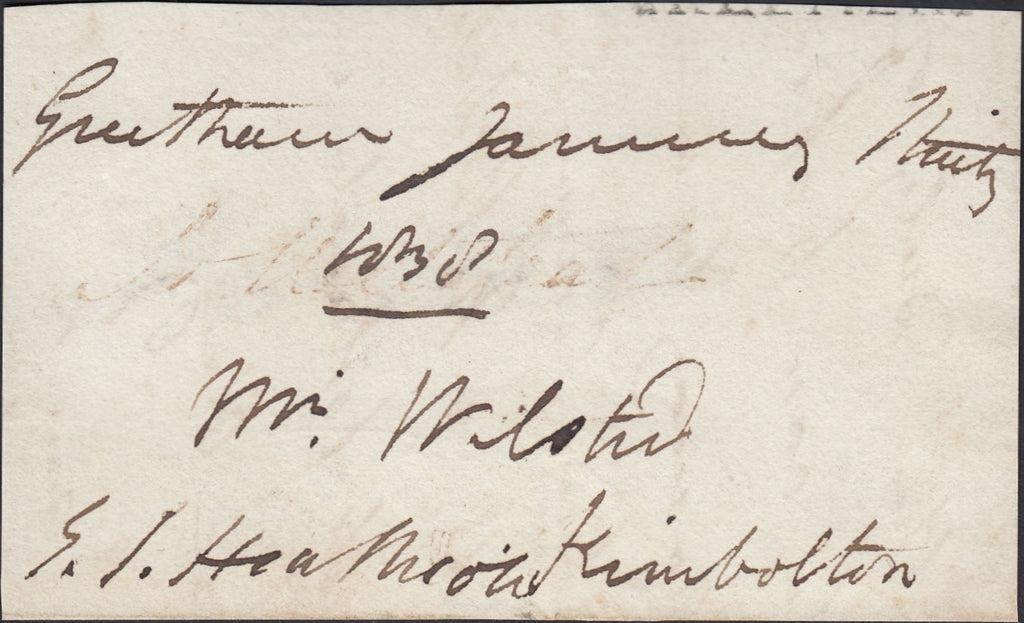 Greetham January Thirty
1838
Mr. Wilsted
G. J. Heathcote Kimbolton